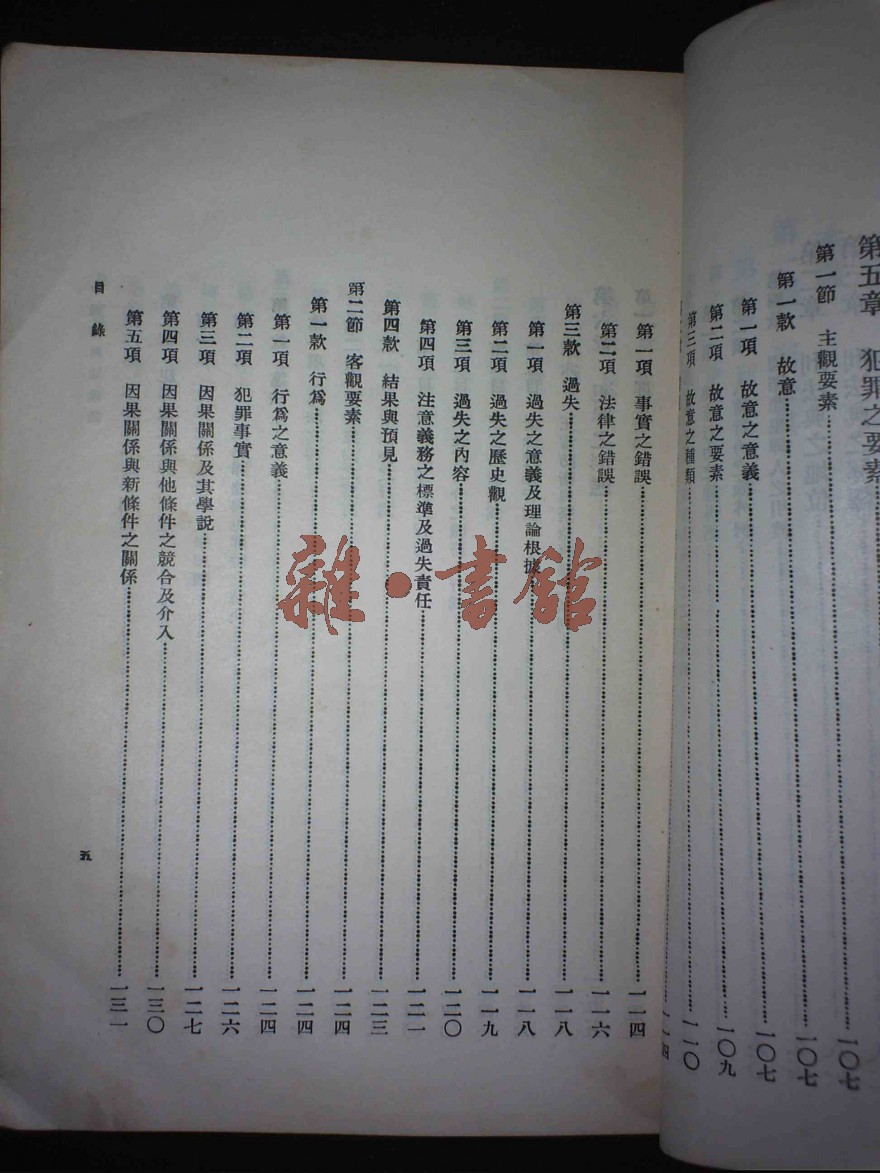 第五章 犯罪之要素
第一節 主觀要素……一〇七
第一款 故意……一〇七
第一項 故意之意義……一〇七
第二項 故意之要素……一〇九
第三項 故意之種類……一一〇
一一四
第一項 事實之錯誤……一一四
第二項 法律之錯誤……一一六
第三款 過失……一一八
第一項 過失之意義及理論根據……一一八
第二項 過失之歷史觀……一一九
第三項 過失之內容……一二〇
第四項 注意義務之標準及過失責任……一二一
第四款 結果與預見……一二三
第二節 客觀要素……一二四
第一款 行爲……一二四
第一項 行爲之意義……一二四
第二項 犯罪事實……一二六
第三項 因果關係及其學說……一二七
第四項 因果關係與他條件之競合及介入……一三〇
第五項 因果關係與新條件之關係……一三一
目錄
五
雜·書館